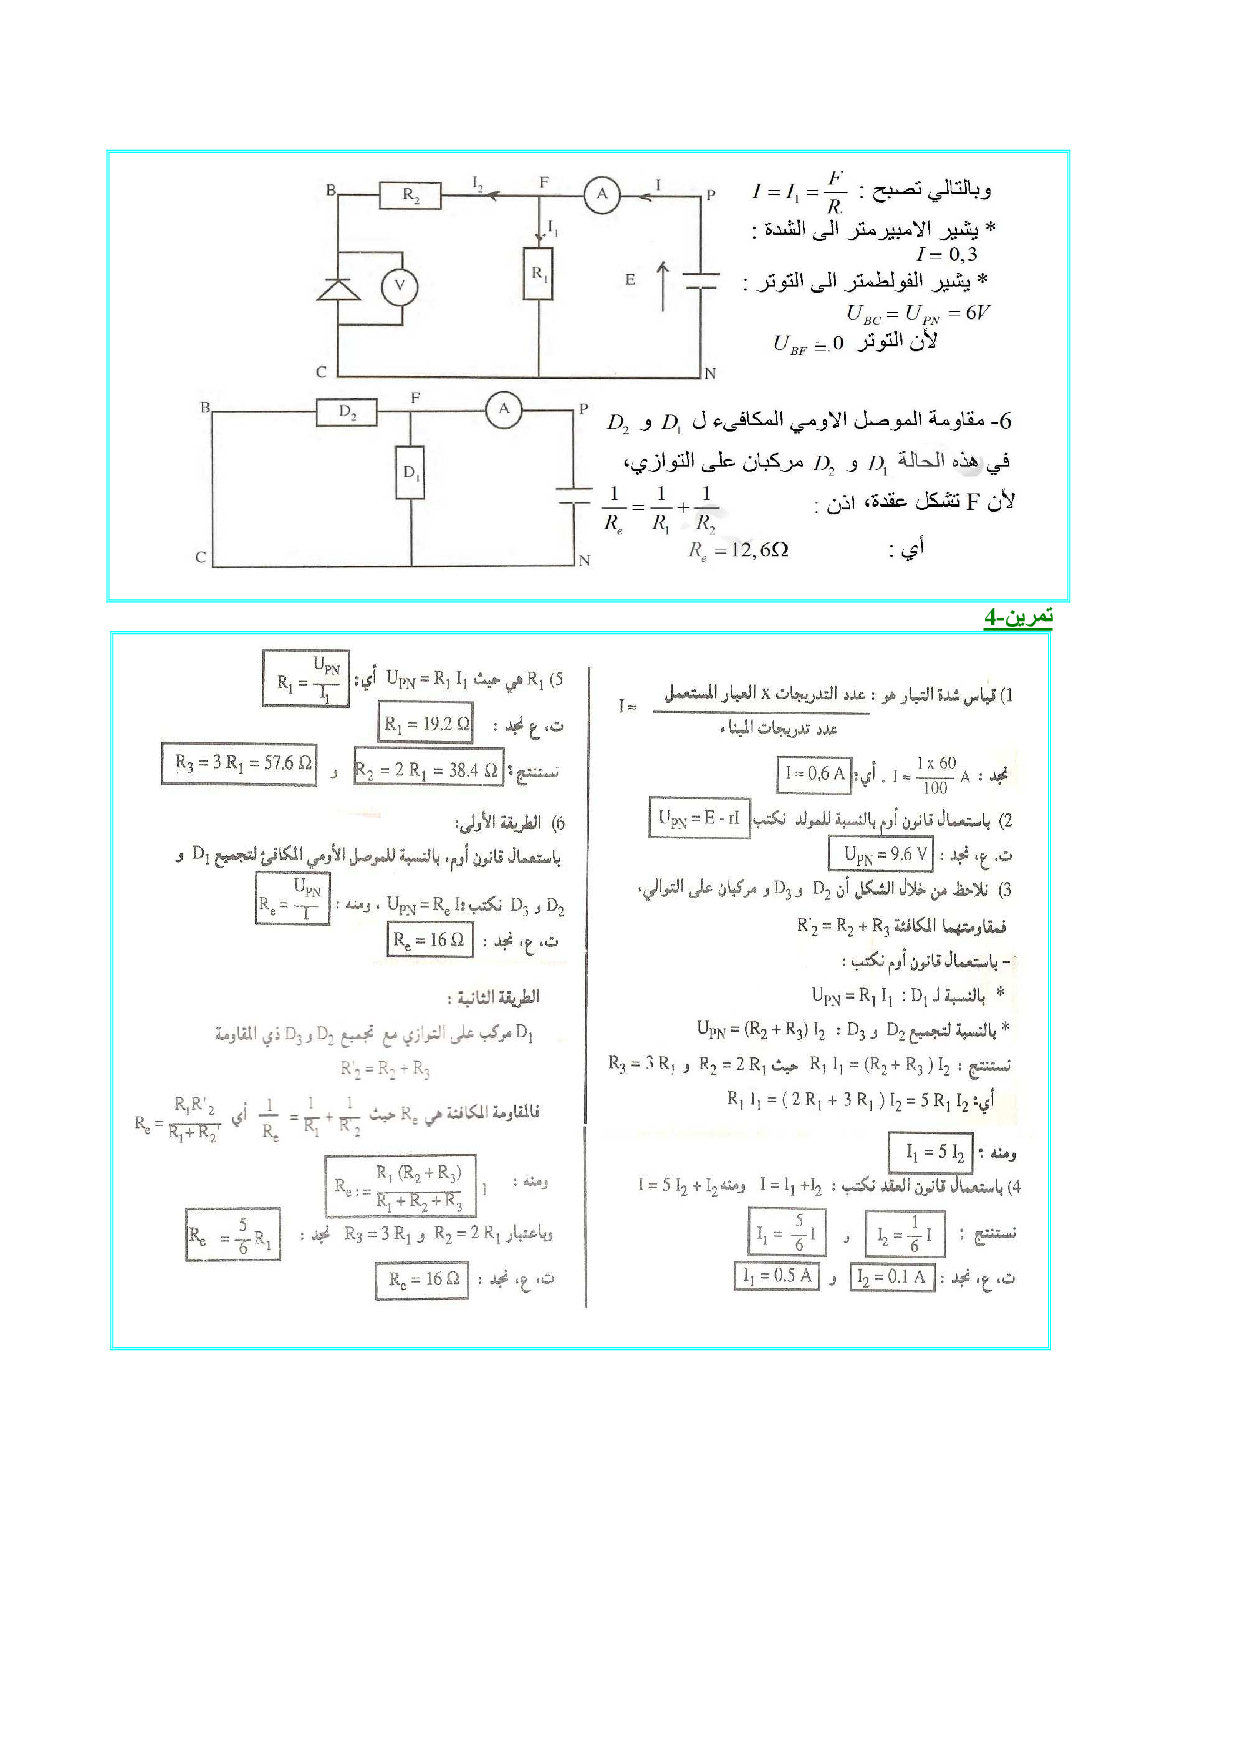 وبالتالي تصبح : I = I₁ = F/R.
* يشير الامبيرمتر الى الشدة :
I = 0,3
* يشير الفولطمتر الى التوتر :
U_BC = U_PN = 6V
لأن التوتر U_BF = 0
B R₂ I₂ F A I P
I₁
V R₁ E
C N
6- مقاومة الموصل الاومي المكافىء ل D₁ و D₂
في هذه الحالة D₁ و D₂ مركبان على التوازي،
لأن F تشكل عقدة، اذن : 1/R_e = 1/R₁ + 1/R₂
أي : R_e = 12,6Ω
B D₂ F A P
D₁
C N
تمرين-4
1) قياس شدة التيار هو : I = عدد التدريجات x العيار المستعمل / عدد تدريجات الميناء
نجد : I = 1 x 60/100 A . أي: I = 0,6 A
2) باستعمال قانون أوم بالنسبة للمولد نكتب U_PN = E - rI
ت. ع، نجد : U_PN = 9.6 V
3) نلاحظ من خلال الشكل أن D₂ و D₃ و مركبان على التوالي،
فمقاومتهما المكافئة R'₂ = R₂ + R₃
- باستعمال قانون أوم نكتب :
* بالنسبة لـ D₁ : U_PN = R₁ I₁
* بالنسبة لتجميع D₂ و D₃ : U_PN = (R₂ + R₃) I₂
نستنتج : R₁ I₁ = (R₂ + R₃) I₂ حيث R₂ = 2 R₁ و R₃ = 3 R₁
أي: R₁ I₁ = ( 2 R₁ + 3 R₁ ) I₂ = 5 R₁ I₂
ومنه : I₁ = 5 I₂
4) باستعمال قانون العقد نكتب : I = I₁ + I₂ ومنه I = 5 I₂ + I₂
نستنتج : I₂ = 1/6 I و I₁ = 5/6 I
ت، ع، نجد : I₂ = 0.1 A و I₁ = 0.5 A
5) R₁ هي حيث U_PN = R₁ I₁ أي: R₁ = U_PN/I₁
ت، ع نجد : R₁ = 19.2 Ω
نستنتج: R₂ = 2 R₁ = 38.4 Ω و R₃ = 3 R₁ = 57.6 Ω
6) الطريقة الأولى:
باستعمال قانون أوم، بالنسبة للموصل الأومي المكافئ لتجميع D₁ و
D₂ و D₃ نكتب: U_PN = R_e I ، ومنه : R_e = U_PN/I
ت، ع، نجد : R_e = 16 Ω
الطريقة الثانية :
D₁ مركب على التوازي مع تجميع D₂ و D₃ ذي المقاومة
R'₂ = R₂ + R₃
فالمقاومة المكافئة هي R_e حيث 1/R_e = 1/R₁ + 1/R'₂ أي R_e = R₁R'₂/R₁+R'₂
ومنه : R_e = R₁ (R₂ + R₃)/R₁ + R₂ + R₃
وباعتبار R₂ = 2 R₁ و R₃ = 3 R₁ نجد : R_e = 5/6 R₁
ت، ع، نجد : R_e = 16 Ω